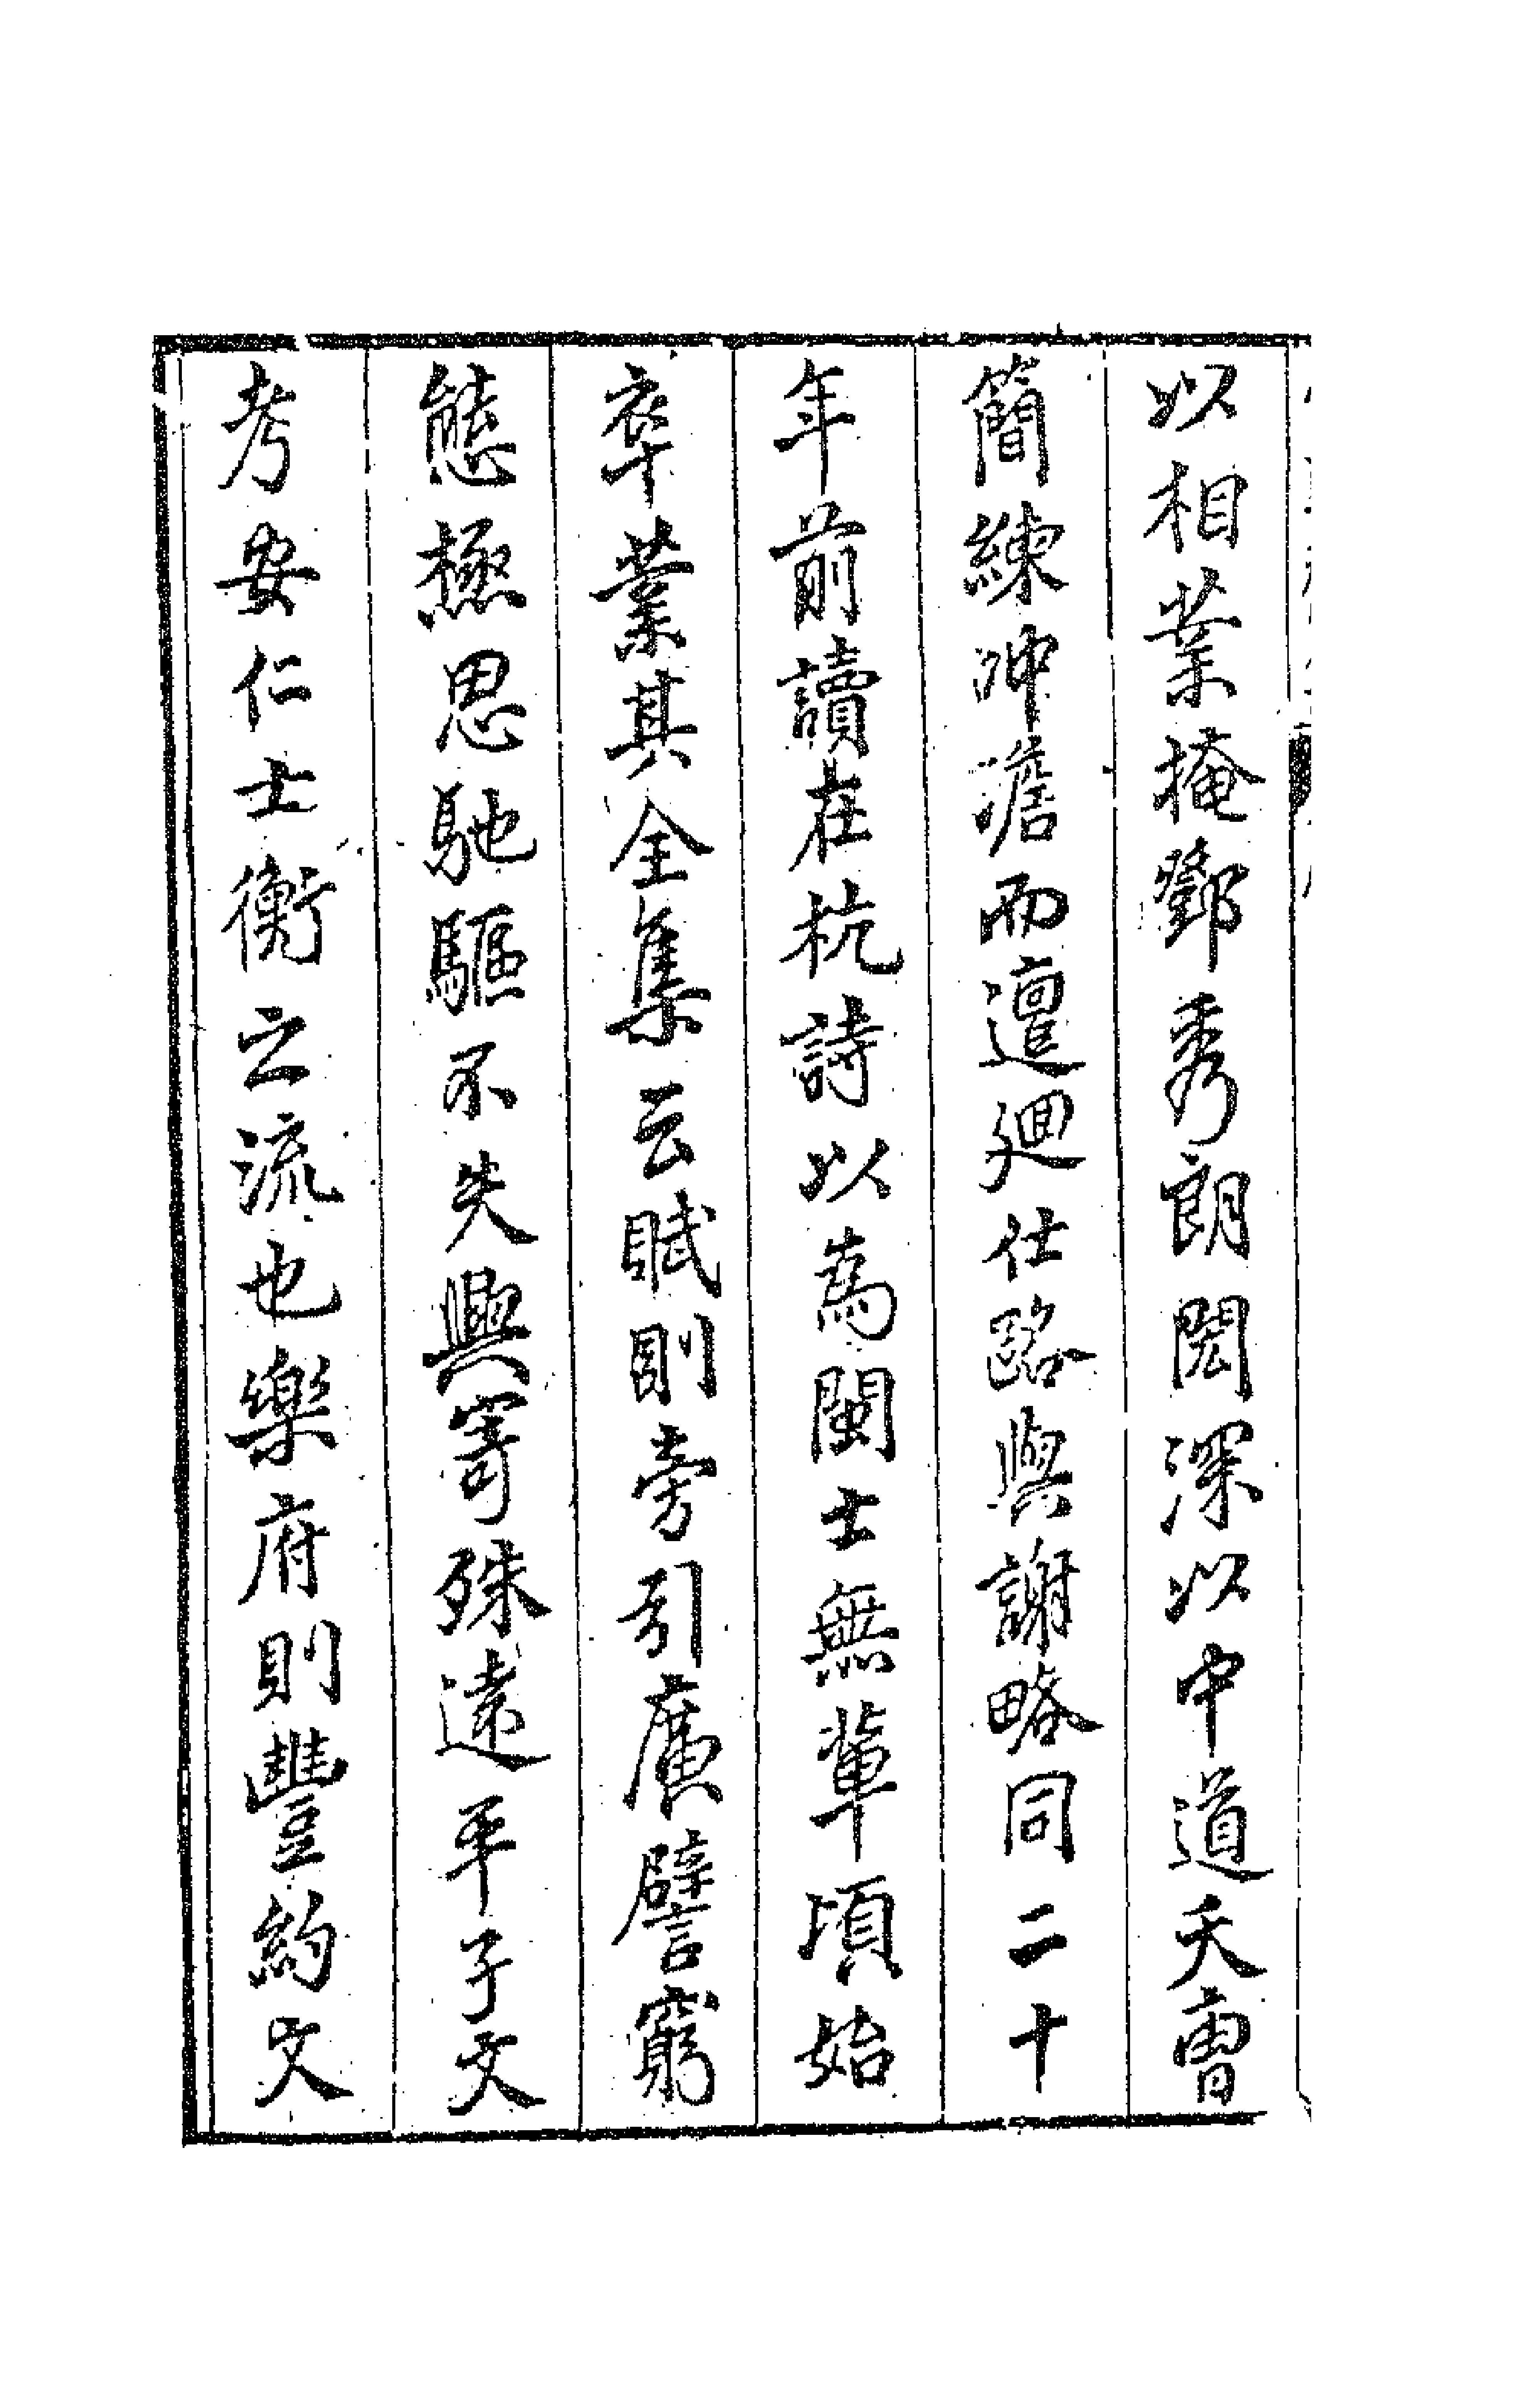 以相業掩鄧秀朗閎深以中道夭曹
簡練沖澹而邅廻仕路與謝略同二十
年前讀在杭詩以為閩士無輩頃始
卒業其全集云賦則旁引廣譬窮
態極思馳驅不失興寄殊遠平子文
考安仁士衡之流也樂府則豐約文